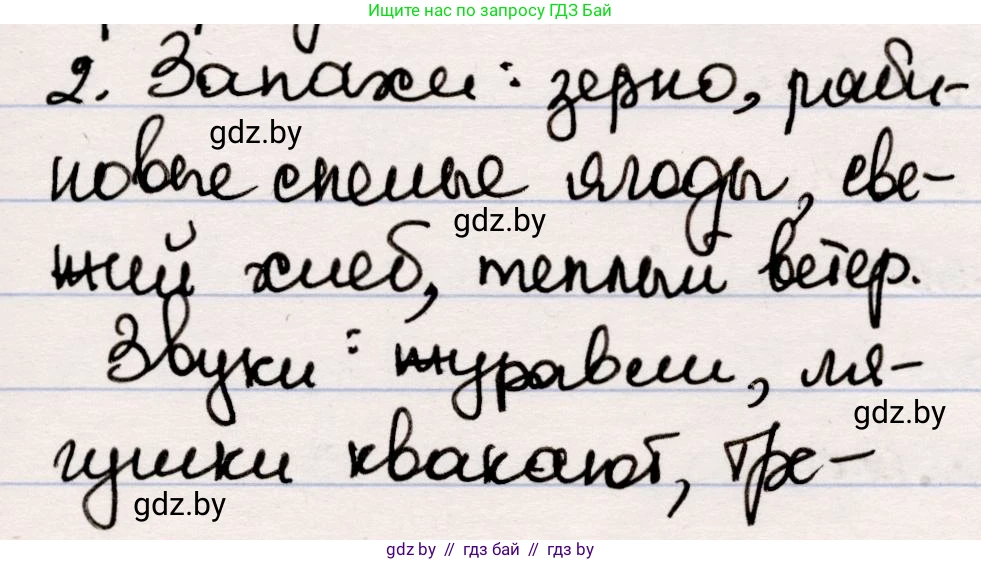 Ищите нас по запросу ГДЗ Бай
2. Запахи: зерно, ряби-
gdz.by
новые спелые ягоды, све-
gdz.by
жий хлеб, теплый ветер.
Звуки: журавли, ля-
gdz.by
гушки квакают, тре-
gdz.by
gdz by // гдз бай // gdz by